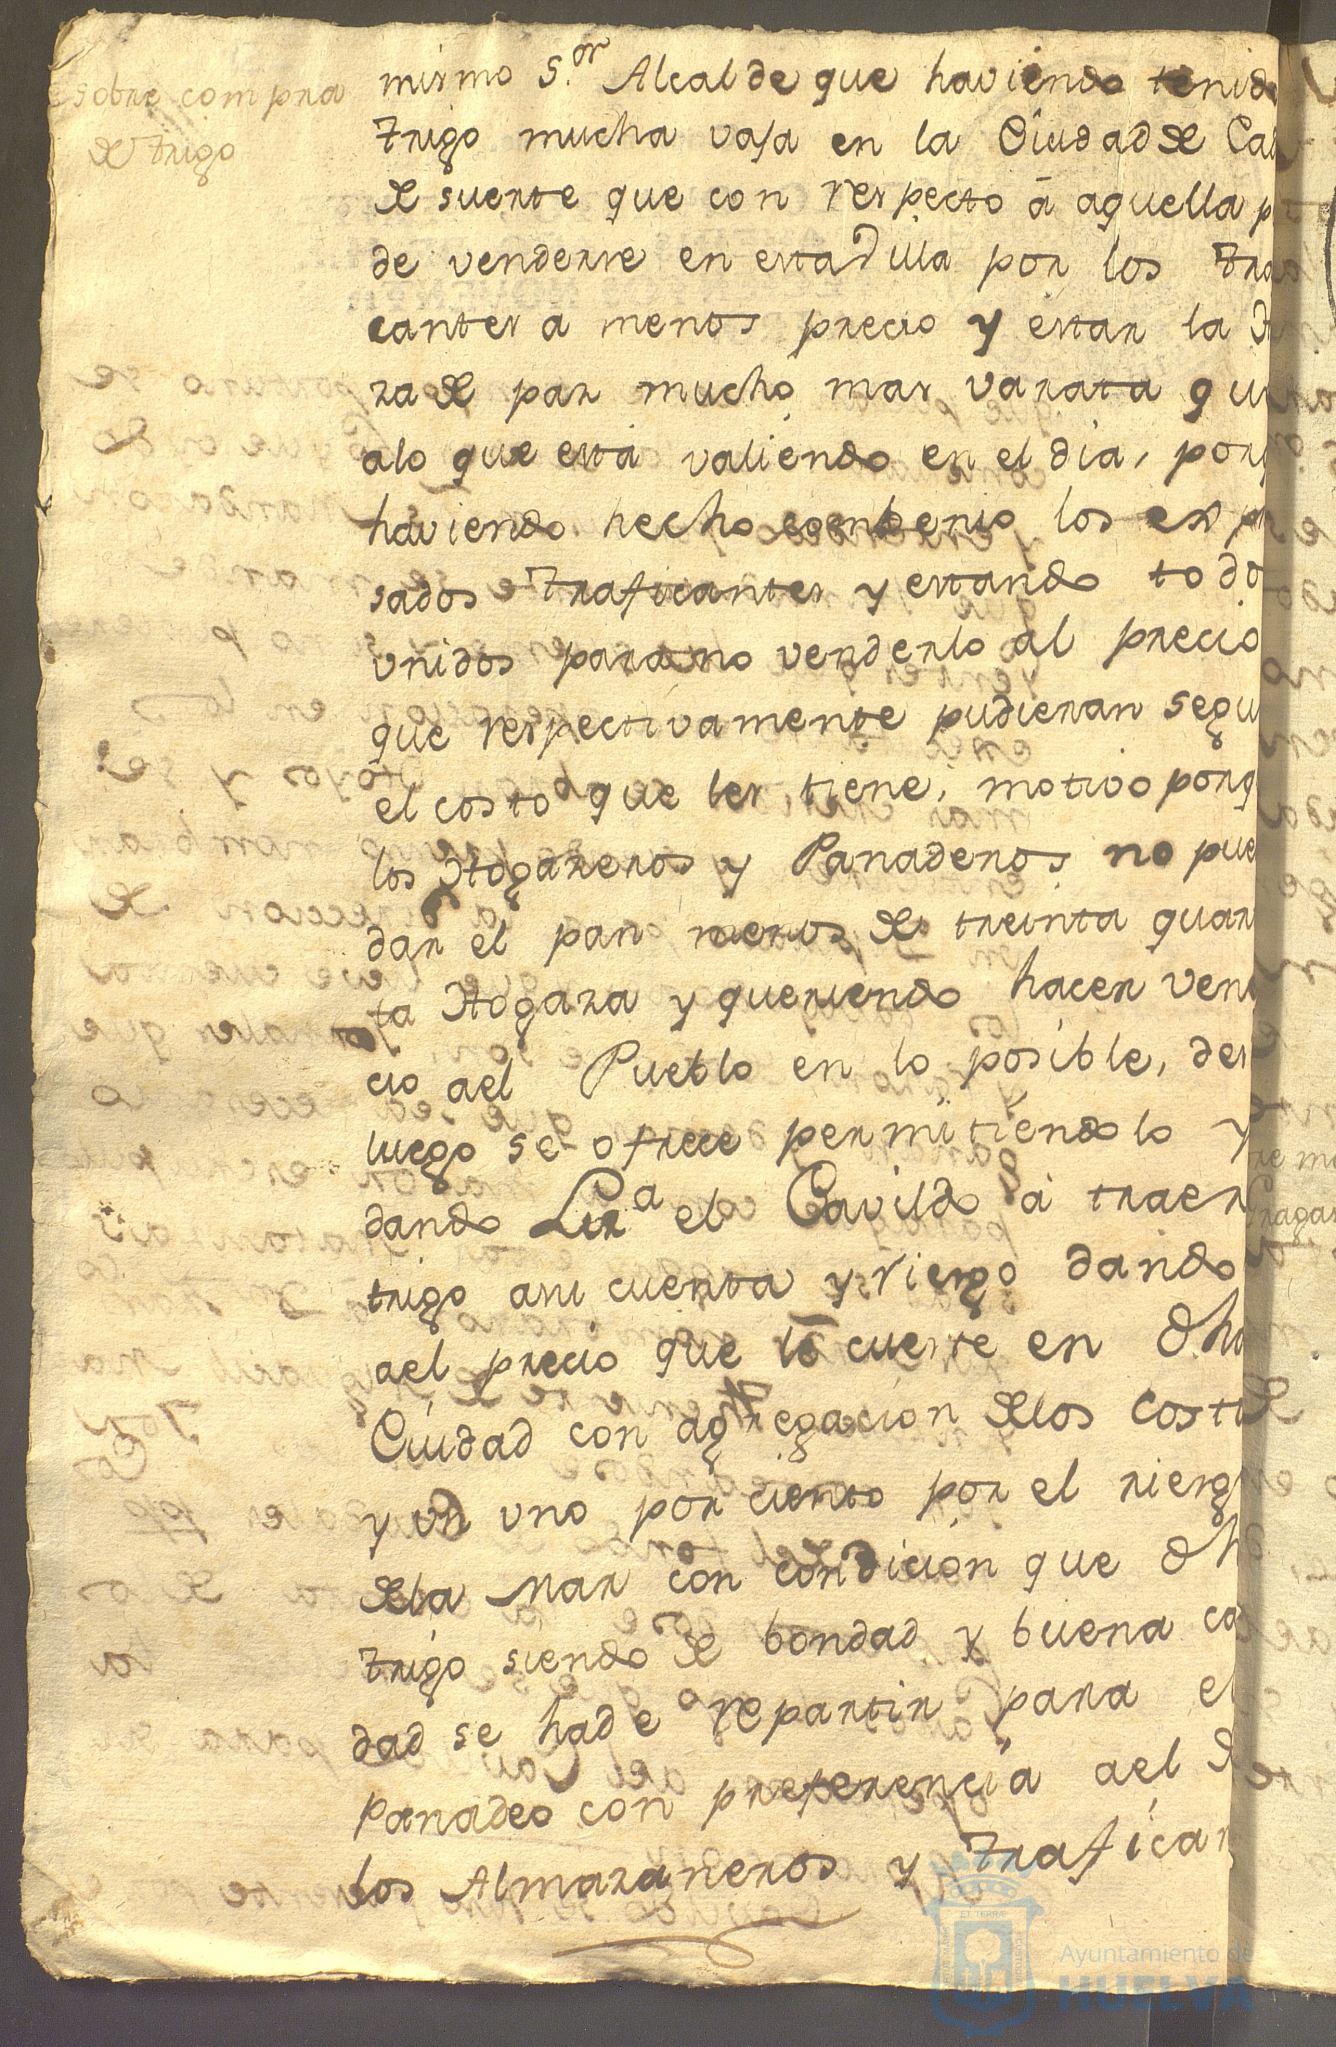 sobre compra
de trigo
mismo S.or Alcalde que haviendo tenido
trigo mucha vaja en la Ciudad de Ca
de suerte que con respecto á aquella p
de venderse en esta Villa por los tra
cantes a menos precio y estar la
za de pan mucho mas varata que
alo que está valiendo en el dia, porq
haviendo hecho los expre
sados traficantes y estando todo
vnidos para no venderlo al precio
que respectivamente pudieran segu
el costo que les tiene, motivo porq
los Hogazeros y Panaderos no pue
dar el pan menos de treinta quar
ta Hogaza y queriendo hacer vene
cio ael Pueblo en lo posible, des
luego se ofrece permitiendolo y
dando Liz.a el Cavildo á traer
trigo asu cuenta y riesgo dando
ael precio que le cueste en dha
Ciudad con agregacion delos costo
y un uno por ciento por el riesg
dela Mar con condicion que dh
trigo siendo de bondad y buena ca
dad se hade repartir para el
Panadeo con preferencia ael d
los Almazaneros y trafican
Ayuntamiento de
HUELVA